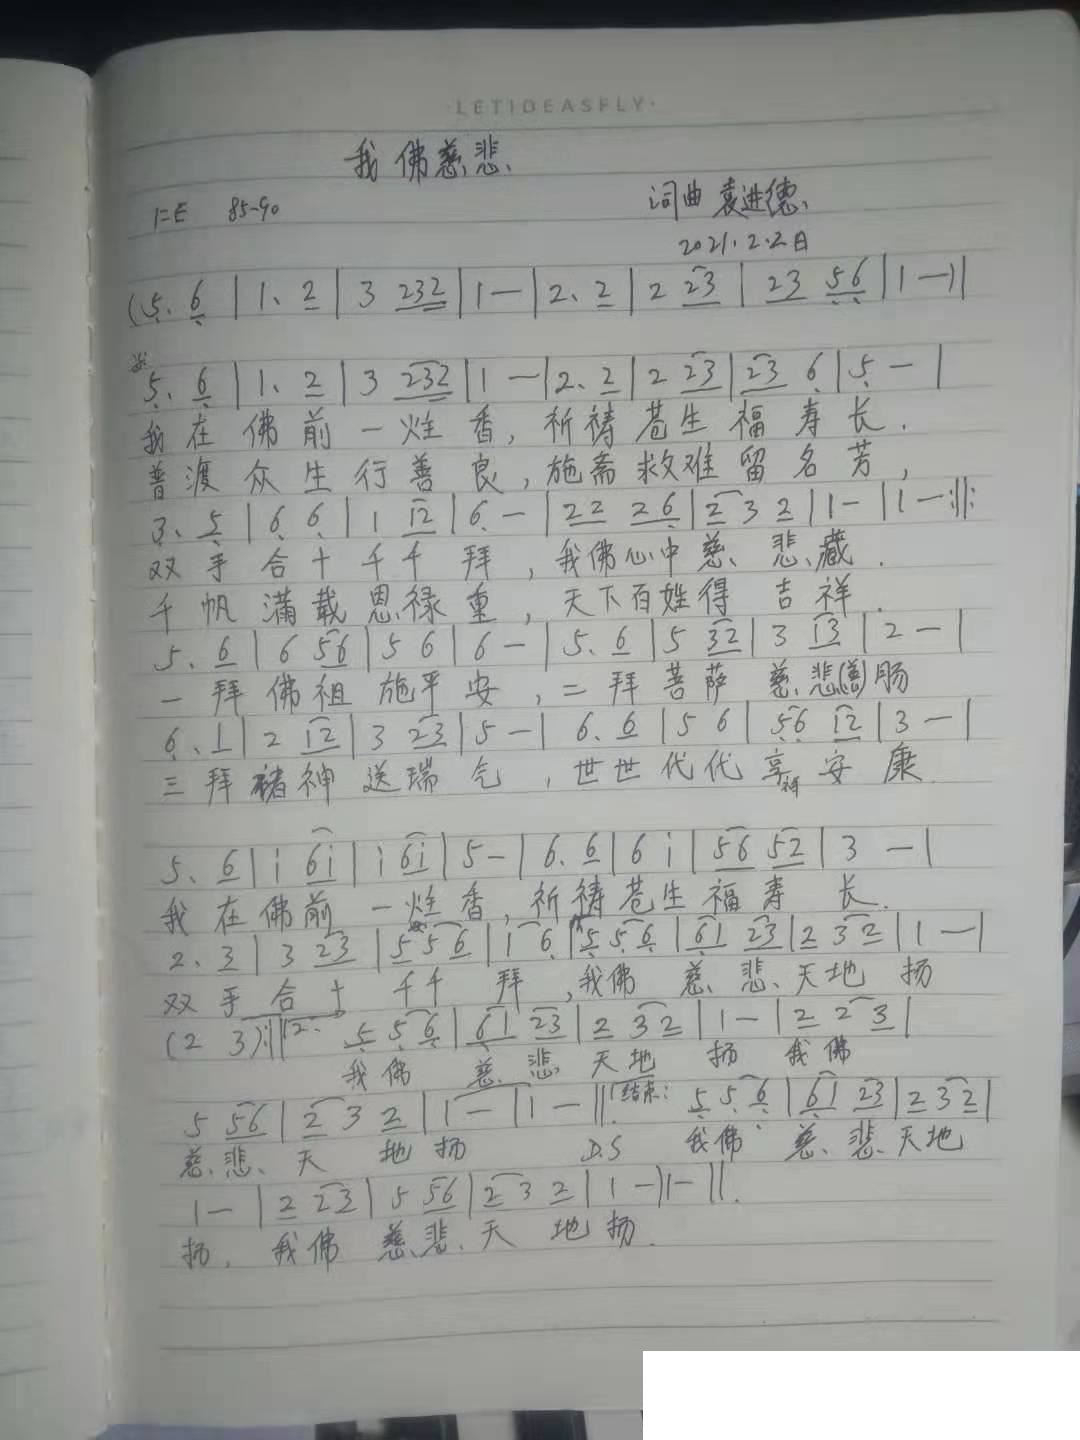 ·LETIDEASFLY·
我佛慈悲、
1=E 85-90 词曲 袁进德、
2021.2.2日
(5. 6 | 1. 2 | 3 232 | 1 — | 2. 2 | 2 23 | 23 56 | 1 —) |
5. 6 | 1. 2 | 3 232 | 1 — | 2. 2 | 2 23 | 23 6 | 5 — |
我在佛前一炷香,祈祷苍生福寿长.
普渡众生行善良,施斋救难留名芳,
3. 5 | 6 6 | 1 12 | 6 — | 22 26 | 2 3 2 | 1 — | 1 — :||:
双手合十千千拜,我佛心中慈悲藏.
千帆满载恩禄重,天下百姓得吉祥.
5. 6 | 6 56 | 5 6 | 6 — | 5. 6 | 5 32 | 3 13 | 2 — |
一拜佛祖施平安,二拜菩萨慈悲(善)肠
6. 1 | 2 12 | 3 23 | 5 — | 6. 6 | 5 6 | 56 12 | 3 — |
三拜诸神送瑞气,世世代代享安康.
5. 6 | i 6i | i 6i | 5 — | 6. 6 | 6 i | 56 52 | 3 — |
我在佛前一炷香,祈祷苍生福寿长.
2. 3 | 3 23 | 5 5 6 | 1 6 | 5 5 6 | 61 23 | 2 3 2 | 1 — |
双手合十千千拜,我佛慈悲天地扬
(2 3) :|| 2. 5 5 6 | 61 23 | 2 3 2 | 1 — | 2 2 3 |
我佛慈悲天地扬我佛
5 56 | 2 3 2 | 1 — | 1 — || 结束: 5 5 6 | 61 23 | 2 3 2 |
慈悲天地扬 D.S 我佛慈悲天地
1 — | 2 23 | 5 56 | 2 3 2 | 1 — | 1 — ||.
扬,我佛慈悲天地扬.